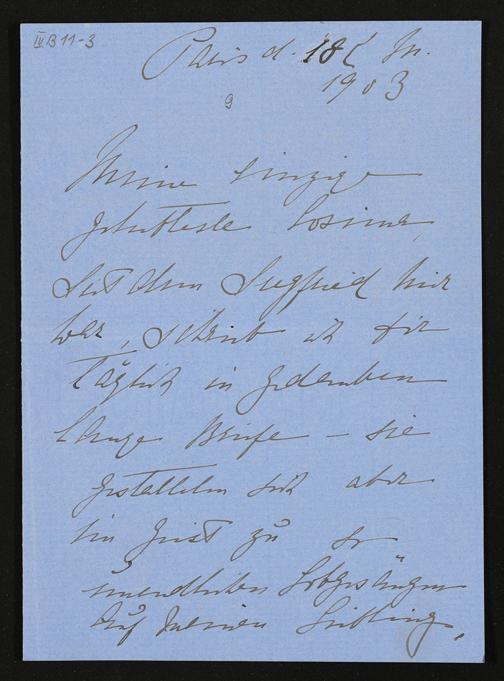 IV B 11-3
Paris d. 18t Jn.
1903
9
Meine einzige
geliebteste Cosima,
Seit dem Siegfried hier
war, schrieb ich dir
täglich in Gedanken
lange Briefe – sie
gestalteten sich aber
im Geist zu so
unendlichen Lobgesängen
auf meinen Liebling,